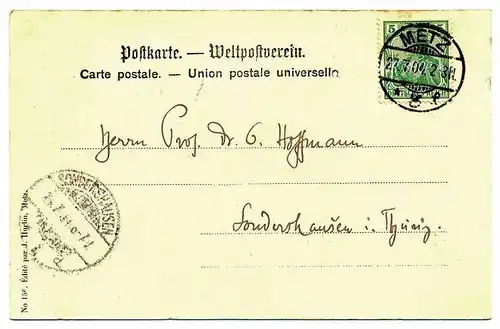 Postkarte. — Weltpostverein.
Carte postale. — Union postale universelle
5
METZ
Herrn Prof. Dr. Hoffmann
SONDERSHAUSEN
Sondershausen i. Thüring.
Edité par J. Metz